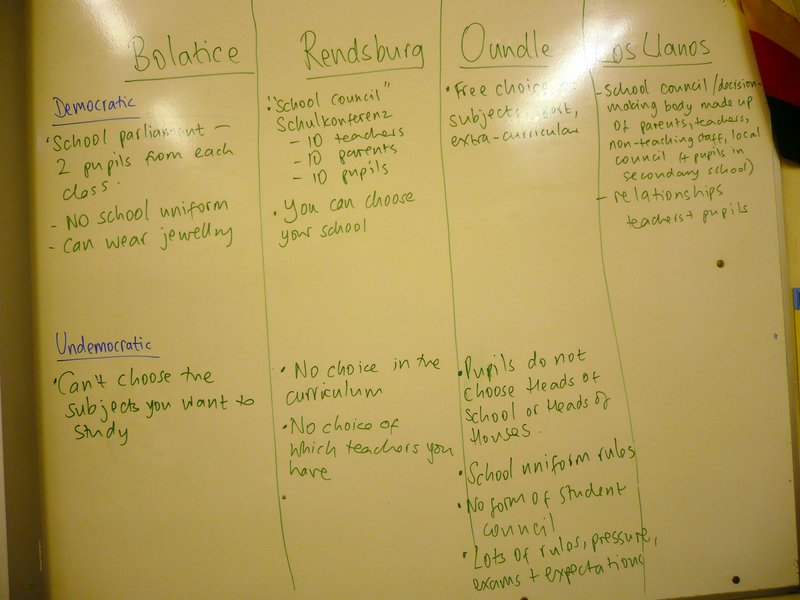 Bolatice
Democratic
•School parliament –
2 pupils from each
class.
- NO school uniform
- Can wear jewellry
Undemocratic
•Can't choose the
subjects you want to
study
Rendsburg
•"School council"
Schulkonferenz
- 10 teachers
- 10 parents
- 10 pupils
• You can choose
your school
• No choice in the
curriculum
•No choice of
which teachers you
have
Oundle
•Free choice
subjects,
extra-curricular
•Pupils do not
choose Heads of
School or Heads of
Houses.
•School uniform rules
•No form of student
council
•Lots of rules, pressure,
exams + expectations
Los Llanos
- School council/decision-
making body made up
of parents, teachers,
non-teaching staff, local
council (+ pupils in
secondary school)
- relationships
teachers + pupils